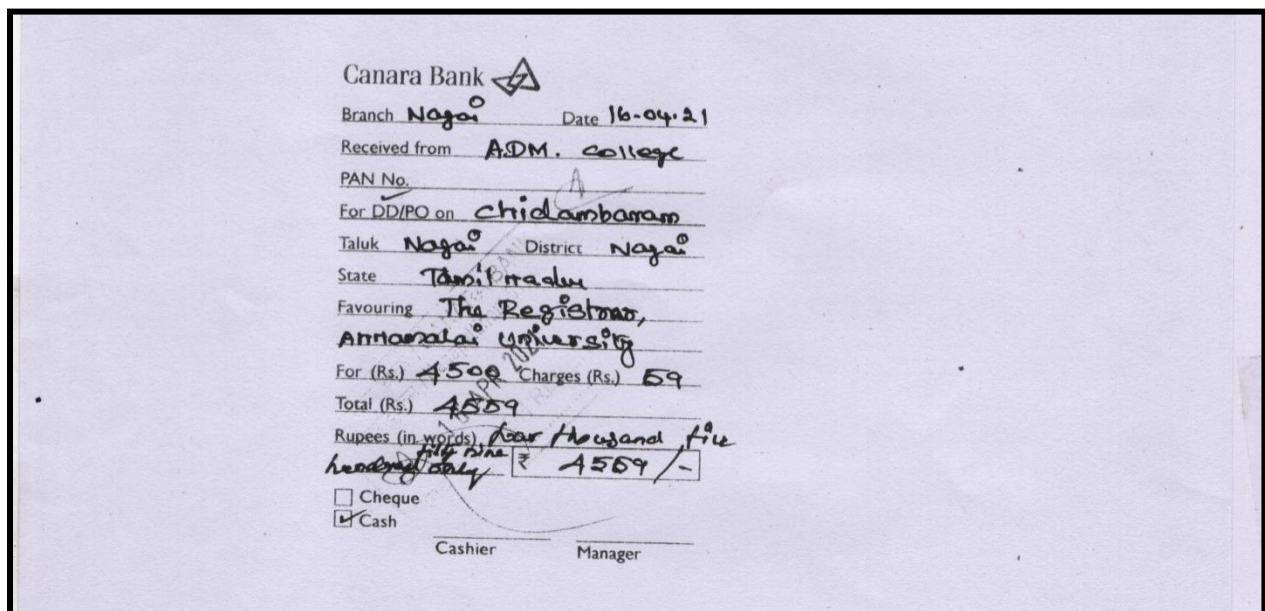 Canara Bank
Branch Nagai Date 16-04-21
Received from A.D.M. College
PAN No.
For DD/PO on Chidambaram
Taluk Nagai District Nagai
State Tamil nadu
Favouring The Registrar,
Annamalai University
For (Rs.) 4500 Charges (Rs.) 59
Total (Rs.) 4559
Rupees (in words) four thousand five
fifty nine
hundred only ₹ 4559/-
Cheque
Cash
Cashier Manager
APR 2021